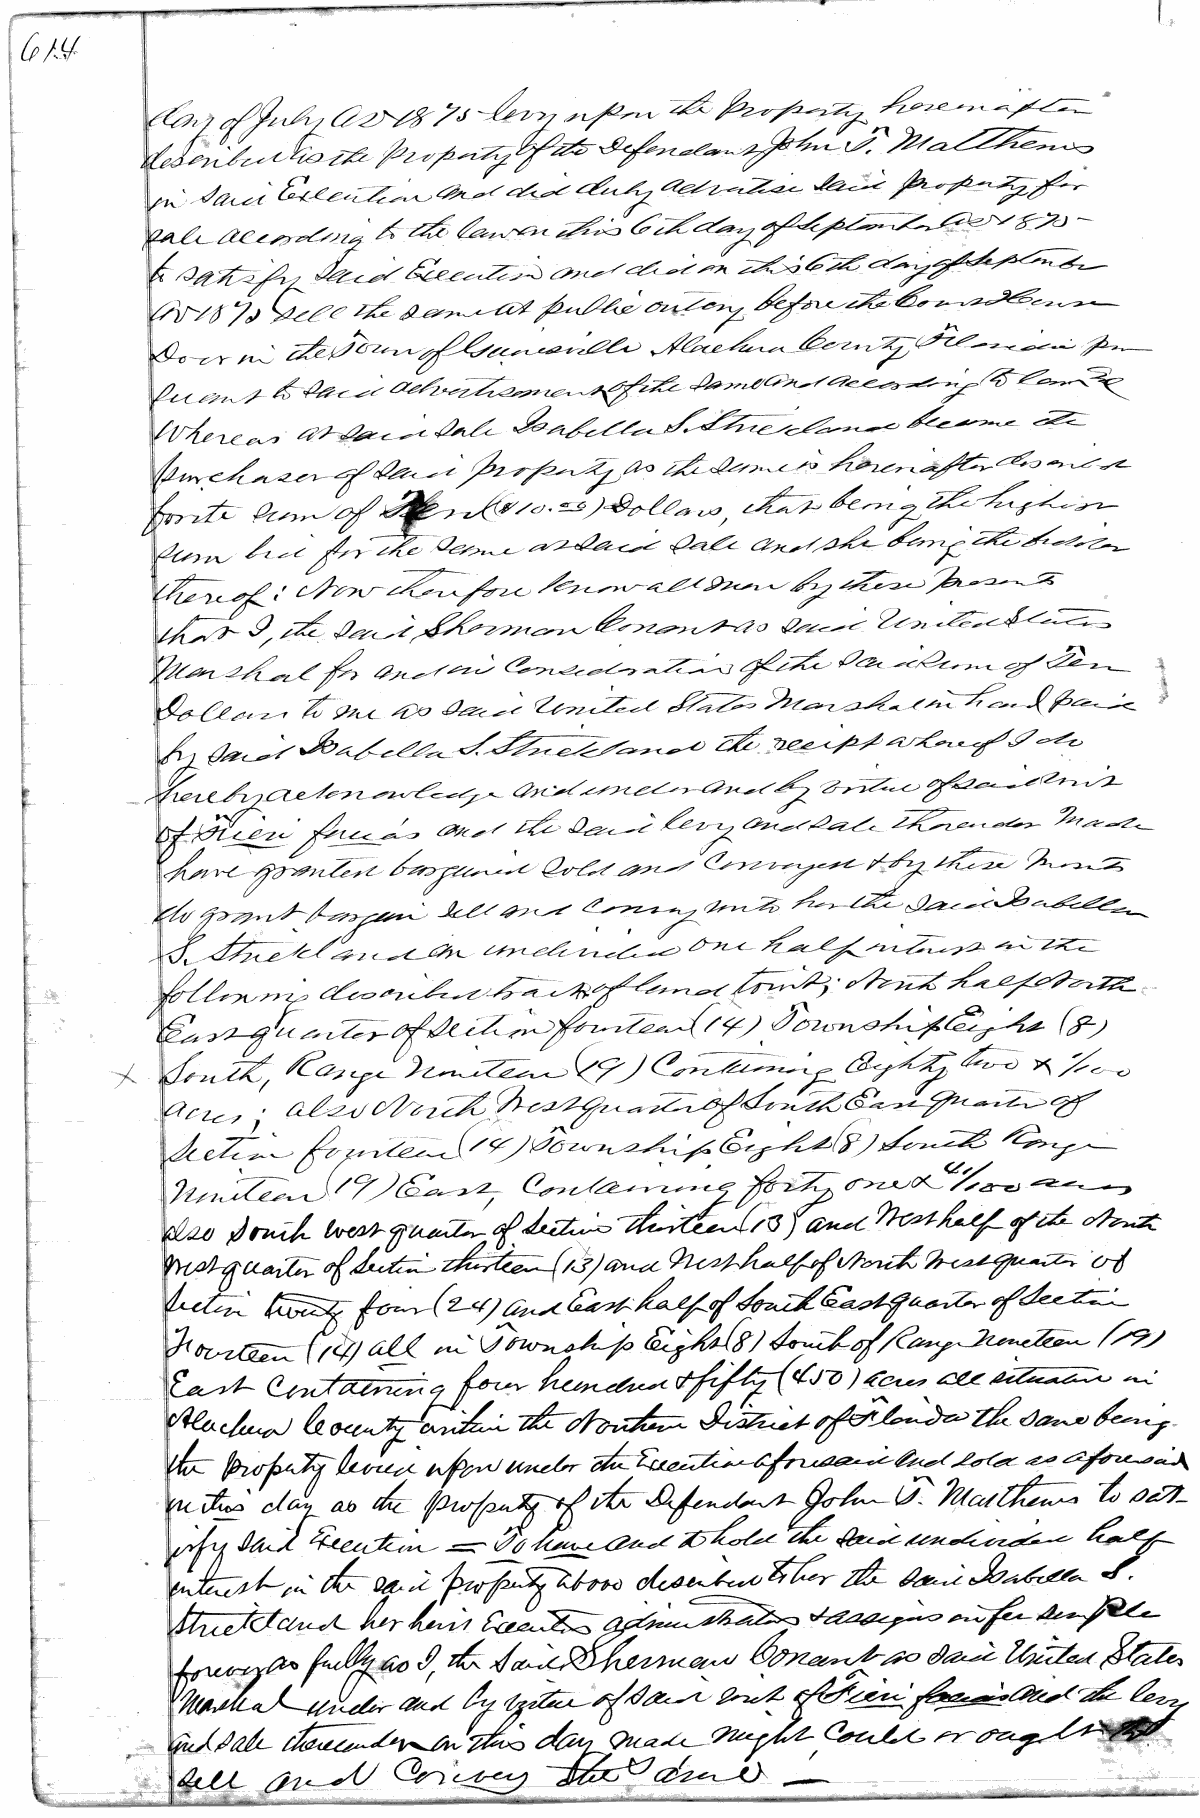 614
day of July AD 1875 levy upon the Property hereinafter
described as the Property of the Defendant John T. Matthews
in said Execution and did duly advertise said property for
sale according to the law on this 6th day of September AD 1875
to satisfy said Execution and did on this 6th day of September
AD 1875 sell the same at public outcry before the Court House
Door in the Town of Gainesville Alachua County, Florida pur
suant to said advertisement of the same and according to law &
Whereas at said sale Isabella S. Strickland became the
purchaser of said property as the same is hereinafter described
for the sum of Ten ($10.00) Dollars, that being the highest
sum bid for the same at said sale and she being the bidder
thereof: Now therefore Know all men by these presents
that I, the said Sherman Conant as said United States
Marshal for and in Consideration of the said sum of Ten
Dollars to me as said United States Marshal in hand paid
by said Isabella S. Strickland the receipt whereof I do
hereby acknowledge and under and by virtue of said writ
of Fieri facias and the said levy and sale thereunder made
have granted bargained sold and Conveyed & by these
do grant bargain sell and Convey unto her the said Isabella
S. Strickland an undivided one half interest in the
following described tracts of land towit; North half North
East quarter of Section fourteen (14) Township Eight (8)
X South, Range Nineteen (19) Containing Eighty two &
acres; also North West quarter of South East quarter of
Section fourteen (14) Township Eight (8) South Range
Nineteen (19) East, Containing forty one & 41/100 acres
also South west quarter of Section thirteen (13) and West half of the North
west quarter of Section thirteen (13) and West half of North West quarter of
Section twenty four (24) and East half of South East quarter of Section
Fourteen (14) all in Township Eight (8) South of Range Nineteen (19)
East Containing four hundred & fifty (450) acres all situate in
Alachua County within the Northern District of Florida the same being
the property levied upon under the Execution aforesaid and sold as aforesaid
on this day as the property of the Defendant John T. Matthews to sat-
isfy said Execution = To have and to hold the said undivided half
interest in the said property above described to her the said Isabella S.
Strickland her heirs Executors administrators & assigns in fee simple
forever as fully as I, the said Sherman Conant as said United States
Marshal under and by virtue of said writ of Fieri facias and the levy
and sale thereunder on this day made might, could or ought to
sell and Convey the same —